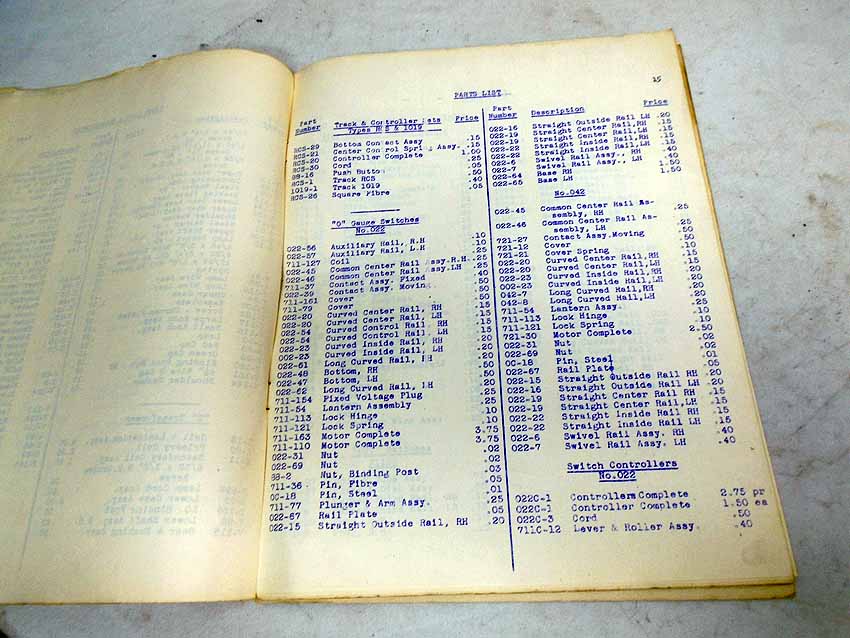 15
PARTS LIST
Part Number Track & Controller Sets Types RCS & 1019 Price
RCS-29 Bottom Contact Assy .15
RCS-21 Center Control Spring Assy. .15
RCS-20 Controller Complete 1.00
RCS-30 Cord .25
88-16 Push Button .05
RCS-1 Track RCS .50
1019-1 Track 1019 .40
RCS-26 Square Fibre .05
"O" Gauge Switches
No.022
022-56 Auxiliary Rail, R.H .10
022-57 Auxiliary Rail, L.H .10
711-127 Coil .25
022-45 Common Center Rail Assy.R.H. .25
022-46 Common Center Rail Assy.LH .25
711-37 Contact Assy. Fixed .40
022-39 Contact Assy. Moving .50
711-161 Cover .50
711-79 Cover .15
022-20 Curved Center Rail, RH .15
022-20 Curved Center Rail, LH .15
022-54 Curved Control Rail, RH .15
022-54 Curved Control Rail, LH .15
022-23 Curved Inside Rail, RH .20
002-23 Curved Inside Rail, LH .20
022-61 Long Curved Rail, RH .20
022-48 Bottom, RH .50
022-47 Bottom, LH .50
022-62 Long Curved Rail, LH .20
711-154 Fixed Voltage Plug .25
711-54 Lantern Assembly .25
711-113 Lock Hinge .10
711-121 Lock Spring .10
711-163 Motor Complete 3.75
711-110 Motor Complete 3.75
022-31 Nut .02
022-69 Nut .02
88-2 Nut, Binding Post .03
711-36 Pin, Fibre .05
OC-18 Pin, Steel .01
711-77 Plunger & Arm Assy. .25
022-67 Rail Plate .05
022-15 Straight Outside Rail, RH .20
Part Number Description Price
022-16 Straight Outside Rail LH .20
022-19 Straight Center Rail,RH .15
022-19 Straight Center Rail,LH .15
022-22 Straight Inside Rail,RH .15
022-22 Straight Inside Rail,LH .15
022-6 Swivel Rail Assy., RH .40
022-7 Swivel Rail Assy., LH .40
022-64 Base RH 1.50
022-65 Base LH 1.50
No.042
022-45 Common Center Rail As-
sembly, RH .25
022-46 Common Center Rail As-
sembly, LH .25
721-27 Contact Assy.Moving .50
721-12 Cover .50
721-21 Cover Spring .10
022-20 Curved Center Rail,RH .15
022-20 Curved Center Rail,LH .15
022-23 Curved Inside Rail,RH .20
002-23 Curved Inside Rail,LH .20
042-7 Long Curved Rail,RH .20
042-8 Long Curved Rail,LH .20
711-54 Lantern Assy. .25
711-113 Lock Hinge .10
711-121 Lock Spring .10
721-30 Motor Complete 2.50
022-31 Nut .02
022-69 Nut .02
OC-18 Pin, Steel .01
022-67 Rail Plate .05
022-15 Straight Outside Rail RH .20
022-16 Straight Outside Rail LH .20
022-19 Straight Center Rail RH .15
022-19 Straight Center Rail,LH .15
022-22 Straight Inside Rail RH .15
022-22 Straight Inside Rail LH .15
022-6 Swivel Rail Assy. RH .40
022-7 Swivel Rail Assy. LH .40
Switch Controllers
No.022
022C-1 Controllers Complete 2.75 pr
022C-1 Controller Complete 1.50 ea
022C-3 Cord .50
711C-12 Lever & Roller Assy. .40